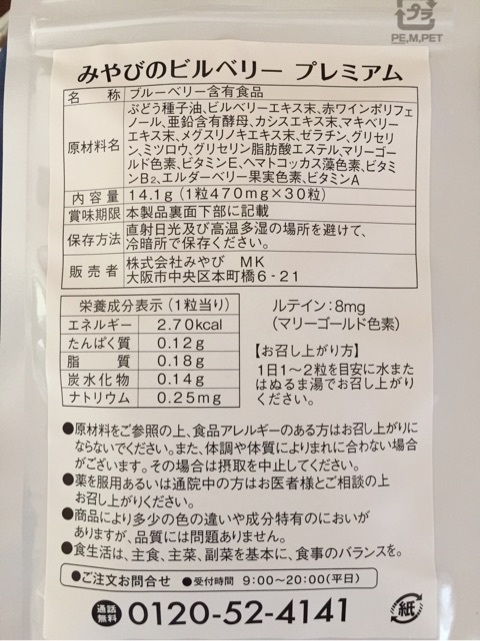 プラ
PE,M,PET
みやびのビルベリー プレミアム
名称 ブルーベリー含有食品
原材料名 ぶどう種子油、ビルベリーエキス末、赤ワインポリフェ
ノール、亜鉛含有酵母、カシスエキス末、マキベリー
エキス末、メグスリノキエキス末、ゼラチン、グリセリ
ン、ミツロウ、グリセリン脂肪酸エステル、マリーゴー
ルド色素、ビタミンE、ヘマトコッカス藻色素、ビタミ
ンB2、エルダーベリー果実色素、ビタミンA
内容量 14.1g（1粒470mg×30粒）
賞味期限 本製品裏面下部に記載
保存方法 直射日光及び高温多湿の場所を避けて、
冷暗所で保存ください。
販売者 株式会社みやび MK
大阪市中央区本町橋6-21
栄養成分表示（1粒当り）
エネルギー 2.70kcal
たんぱく質 0.12g
脂質 0.18g
炭水化物 0.14g
ナトリウム 0.25mg
ルテイン：8mg
（マリーゴールド色素）
【お召し上がり方】
1日1～2粒を目安に水また
はぬるま湯でお召し上がり
ください。
●原材料をご参照の上、食品アレルギーのある方はお召し上がりに
ならないでください。また、体調や体質によりまれに合わない場合
がございます。その場合は摂取を中止してください。
●薬を服用あるいは通院中の方はお医者様とご相談の上
お召し上がりください。
●商品により多少の色の違いや成分特有のにおいが
ありますが、品質には問題ありません。
●食生活は、主食、主菜、副菜を基本に、食事のバランスを。
●ご注文お問合せ ●受付時間 9:00～20:00（平日）
通話無料 0120-52-4141
紙